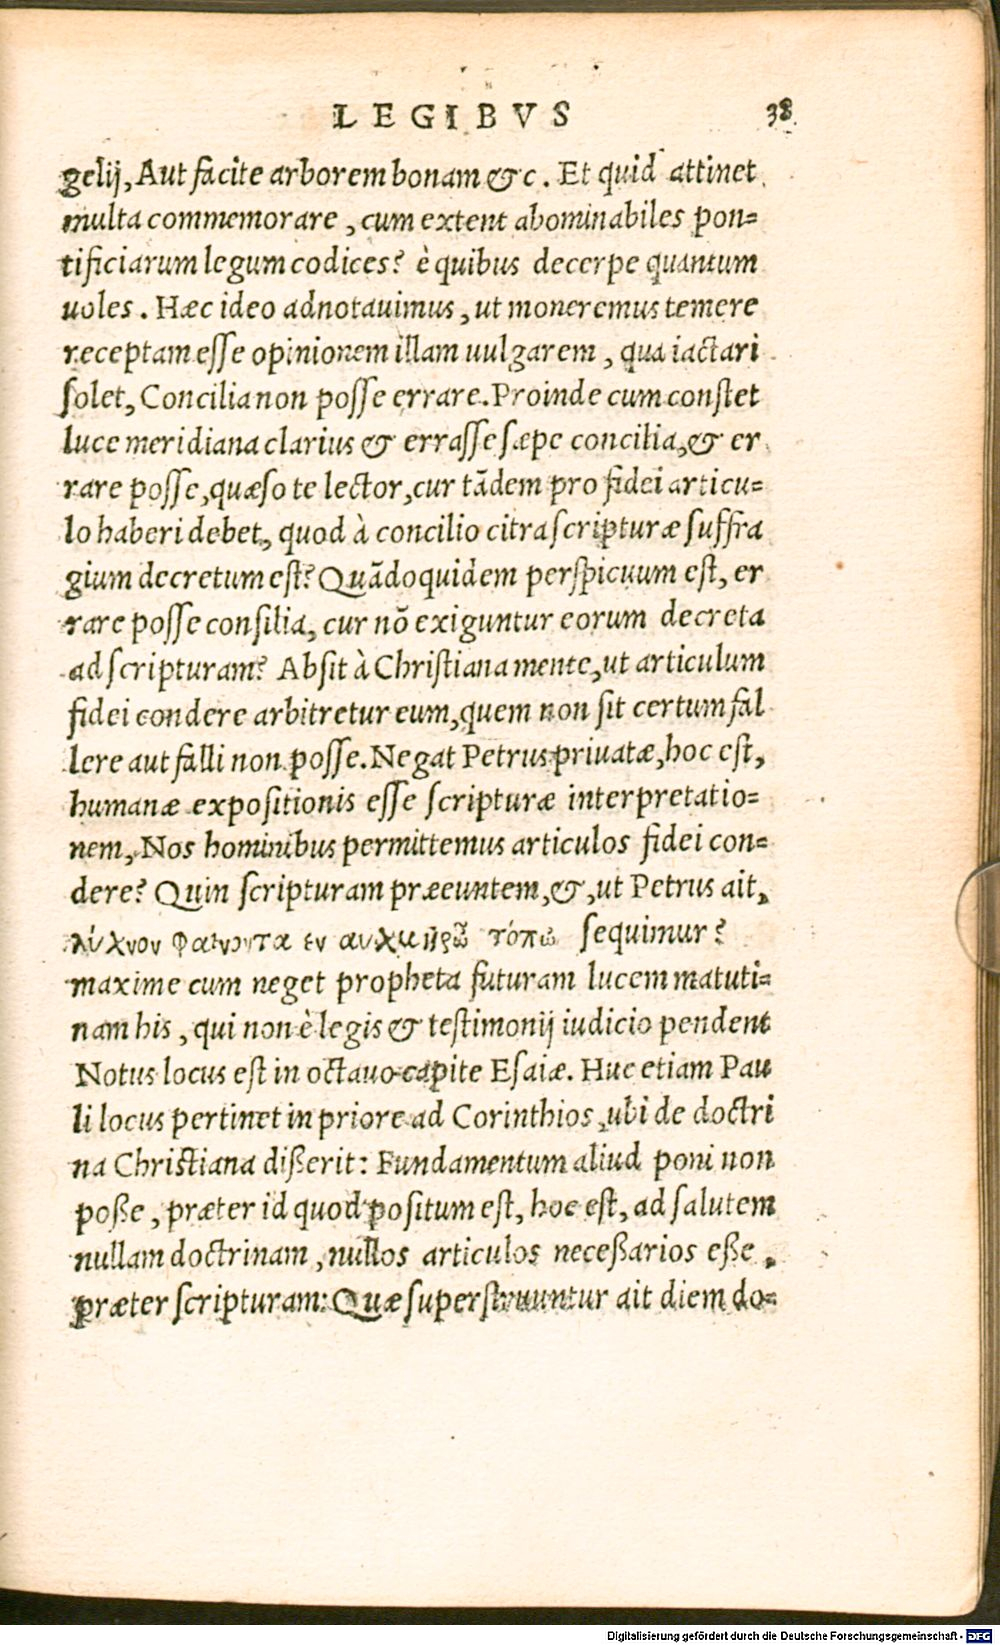 LEGIBVS 38
gelij, Aut facite arborem bonam &c. Et quid attinet
multa commemorare, cum extent abominabiles pon=
tificiarum legum codices? è quibus decerpe quantum
uoles. Hæc ideo adnotauimus, ut moneremus temere
receptam esse opinionem illam uulgarem, qua iactari
solet, Concilia non posse errare. Proinde cum constet
luce meridiana clarius & errasse sæpe concilia, & er
rare posse, quæso te lector, cur tādem pro fidei articu=
lo haberi debet, quod à concilio citra scripturæ suffra
gium decretum est? Quādoquidem perspicuum est, er
rare posse consilia, cur nō exiguntur eorum decreta
ad scripturam? Absit à Christiana mente, ut articulum
fidei condere arbitretur eum, quem non sit certum fal
lere aut falli non posse. Negat Petrus priuatæ, hoc est,
humanæ expositionis esse scripturæ interpretatio=
nem, Nos hominibus permittemus articulos fidei con=
dere? Quin scripturam præeuntem, &, ut Petrus ait,
λύχνον φαίνοντα εν αυχμηρῶ τόπω sequimur?
maxime cum neget propheta futuram lucem matuti=
nam his, qui non è legis & testimonij iudicio pendent
Notus locus est in octauo capite Esaiæ. Huc etiam Pau
li locus pertinet in priore ad Corinthios, ubi de doctri
na Christiana dißerit: Fundamentum aliud poni non
poße, præter id quod positum est, hoc est, ad salutem
nullam doctrinam, nullos articulos neceßarios eße,
præter scripturam: Quæ superstruuntur ait diem do=
Digitalisierung gefördert durch die Deutsche Forschungsgemeinschaft - DFG